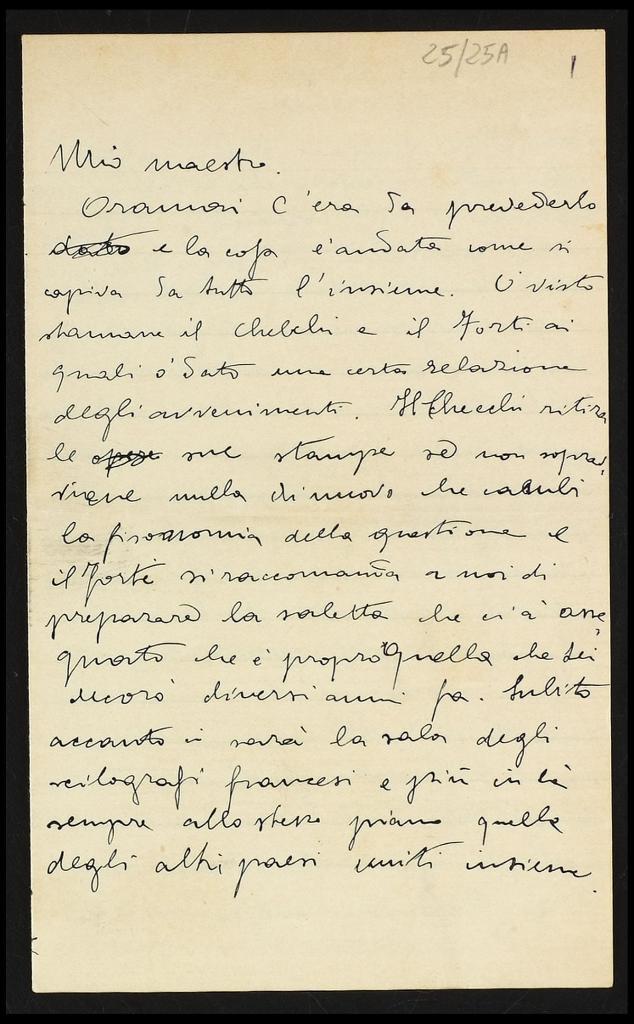 25/25A
1
Mio maestro.
Oramai c'era da prevederlo
dato e la cosa è andata come si
capiva da tutto l'insieme. Ò visto
stamane il Checchi e il Forti ai
quali ò dato una certa relazione
degli avvenimenti. Il Checchi ritira
le sue stampe se non soprav,
viene nulla di nuovo che cambi
la fisonomia della questione e
il Forti si raccomanda a noi di
preparare la saletta che ci à asse,
gnato che è proprio quella che Lei
decorò diversi anni fa. Subito
accanto ci sarà la sala degli
xilografi francesi e più in là
sempre allo stesso piano quella
degli altri paesi uniti insieme.